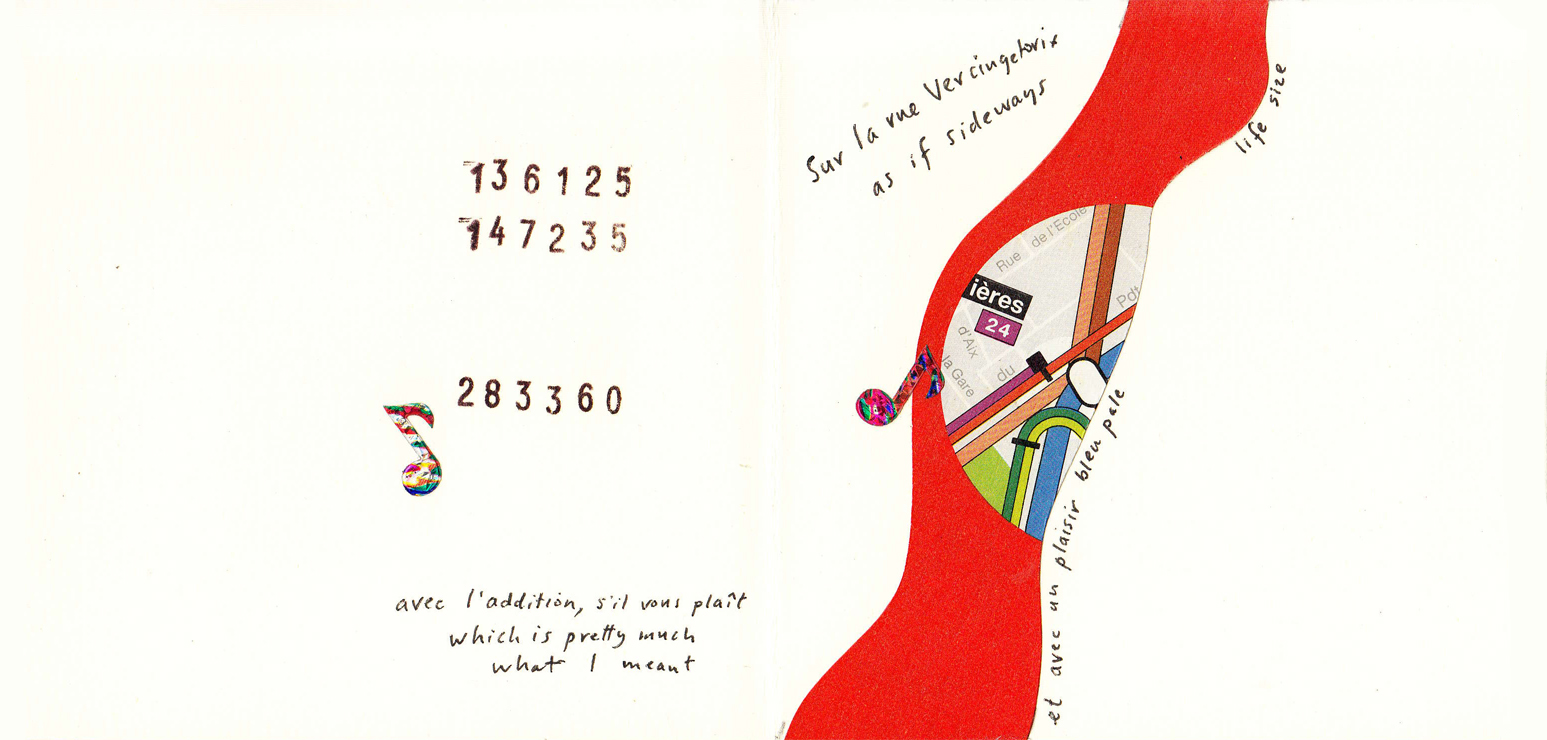 136125
147235
283360
avec l'addition, s'il vous plaît
which is pretty much
what I meant
Sur la rue Vercingetorix
as if sideways
life size
Rue de l'Ecole
ières
24
d'Aix
la Gare
du
Pdt
et avec un plaisir bleu pale